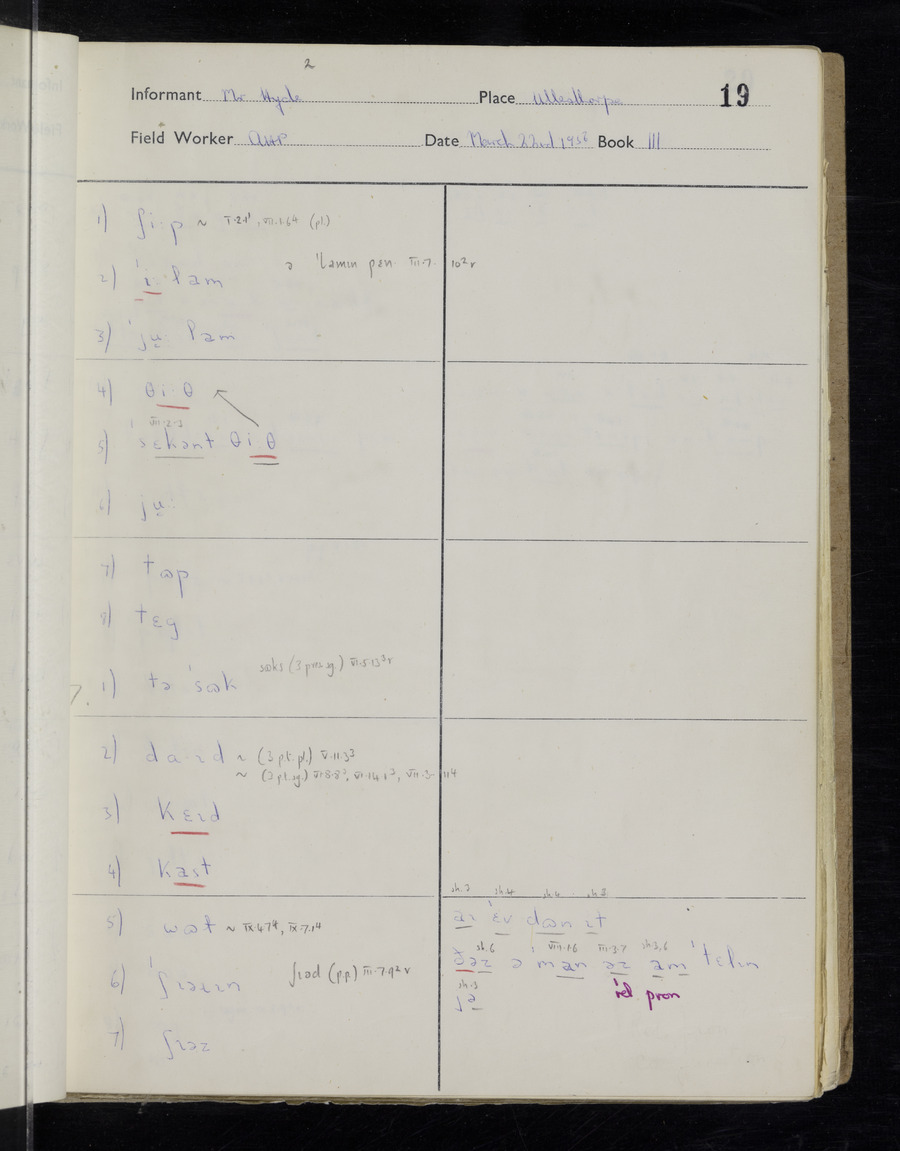 2
Informant Mr Hyde Place Ullesthorpe 19
Field Worker Date March 22nd 1956 Book III
1) ʃi:p ~ I.2.1¹, VII.1.64 (pl.)
ə ˈlamɪn pɛn III.7.10² r
2) ˈi: lam
3) ˈjʉ: lam
4) θi:θ
VII.2.3
5) ˈsɛkənt θi:θ
6) jʉ:
7) tɷp
8) tɛg
7. 1) tə ˈsɷk sɷks (3 pr. sg.) VI.5.13³ r
2) da:ɪd ~ (3 pt. pl.) V.11.3³
~ (3 pt. sg.) VI.8.8³, VI.14.1³, VII.3.14
3) kɛɪd
4) kast
5) wat ~ IX.4.7⁴, IX.7.1⁴
6) ˈʃɪəɪɪn ʃɪəd (p.p.) III.7.9² r
7) ʃɪəz
sh.3 sh.4 sh.4 sh.8
aɪ ˈɛv dɷn ɪt
sh.6 VIII.1.6 III.3.7 sh.3,6
ðəz ə man əz əm ˈtɛlɪn
sh.3
jə rel. pron